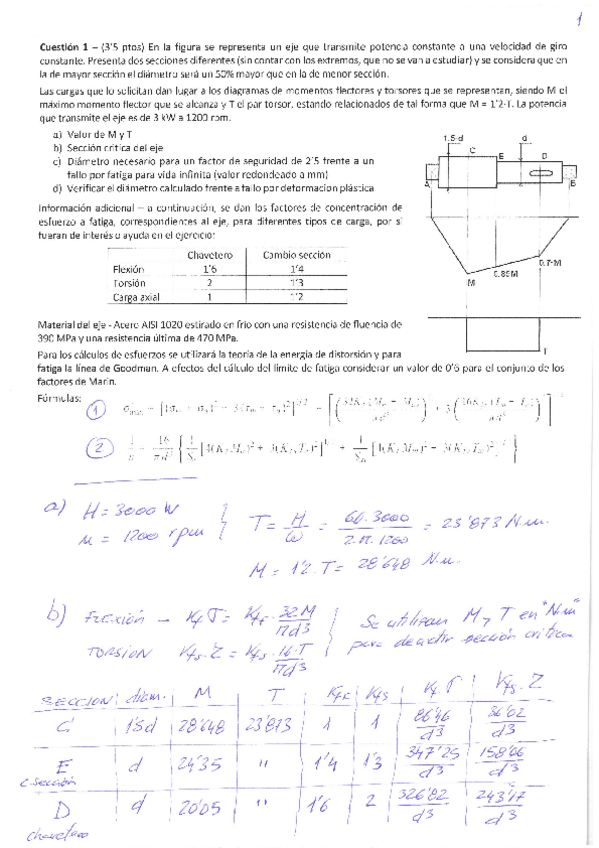 1
Cuestión 1 – (3'5 ptos) En la figura se representa un eje que transmite potencia constante a una velocidad de giro
constante. Presenta dos secciones diferentes (sin contar con los extremos, que no se van a estudiar) y se considera que en
la de mayor sección el diámetro será un 50% mayor que en la de menor sección.
Las cargas que lo solicitan dan lugar a los diagramas de momentos flectores y torsores que se representan, siendo M el
máximo momento flector que se alcanza y T el par torsor, estando relacionados de tal forma que M = 1'2·T. La potencia
que transmite el eje es de 3 kW a 1200 rpm.
a) Valor de M y T
b) Sección crítica del eje
c) Diámetro necesario para un factor de seguridad de 2'5 frente a un
fallo por fatiga para vida infinita (valor redondeado a mm)
d) Verificar el diámetro calculado frente a fallo por deformación plástica
1.5·d d
C E D
A B
Información adicional – a continuación, se dan los factores de concentración de
esfuerzo a fatiga, correspondientes al eje, para diferentes tipos de carga, por si
fueran de interés o ayuda en el ejercicio:
Chavetero Cambio sección
Flexión 1'6 1'4
Torsión 2 1'3
Carga axial 1 1'2
0.7·M
0.85M
M
T
Material del eje - Acero AISI 1020 estirado en frío con una resistencia de fluencia de
390 MPa y una resistencia última de 470 MPa.
Para los cálculos de esfuerzos se utilizará la teoría de la energía de distorsión y para
fatiga la línea de Goodman. A efectos del cálculo del límite de fatiga considerar un valor de 0'6 para el conjunto de los
factores de Marin.
Fórmulas:
1
2
a) H = 3000 W
n = 1200 rpm
T = H/ω = 60·3000/2·π·1200 = 23'873 N·m.
M = 1'2·T = 28'648 N·m.
b) FLEXIÓN – Kf σ = Kf · 32M/πd³
TORSION Kfs·Z = Kfs · 16·T/πd³
Se utilizan M y T en "N·m"
para detectar sección crítica
SECCION diám. M T Kf Kfs Kf σ Kfs·Z
C 1'5d 28'648 23'873 1 1 86'46/d³ 36'02/d³
E d 24'35 " 1'4 1'3 347'25/d³ 158'06/d³
c. sección
D d 20'05 " 1'6 2 326'82/d³ 243'17/d³
chavetero